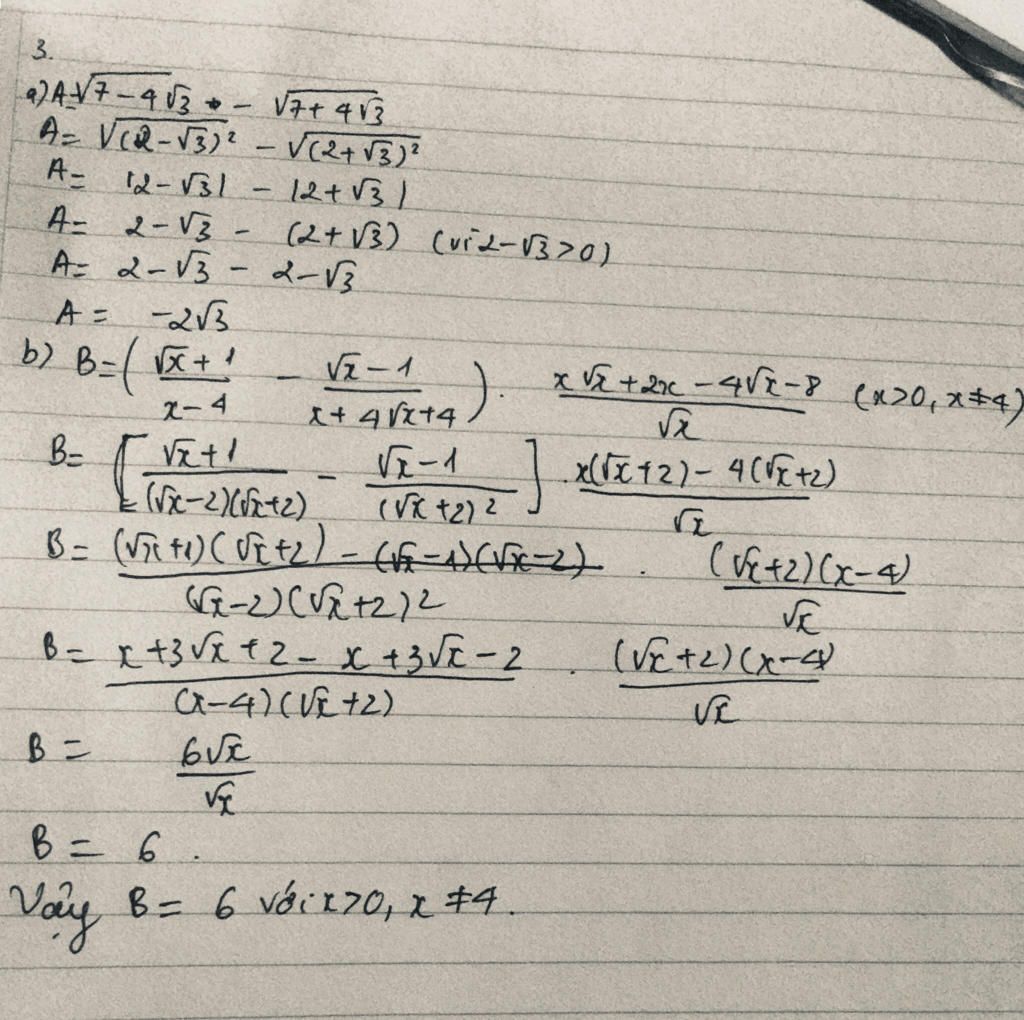 3.
a) A=√(7-4√3) - √(7+4√3)
A= √((2-√3)²) - √((2+√3)²)
A= |2-√3| - |2+√3|
A= 2-√3 - (2+√3) (vì 2-√3>0)
A= 2-√3 - 2-√3
A= -2√3
b) B=((√x+1)/(x-4) - (√x-1)/(x+4√x+4)) . (x√x+2x-4√x-8)/√x (x>0, x≠4)
B= [(√x+1)/((√x-2)(√x+2)) - (√x-1)/((√x+2)²)] . (x(√x+2)-4(√x+2))/√x
B= ((√x+1)(√x+2) - (√x-1)(√x-2))/((√x-2)(√x+2)²) . ((√x+2)(x-4))/√x
B= (x+3√x+2-x+3√x-2)/((x-4)(√x+2)) . ((√x+2)(x-4))/√x
B= 6√x/√x
B= 6.
Vậy B= 6 với x>0, x≠4.